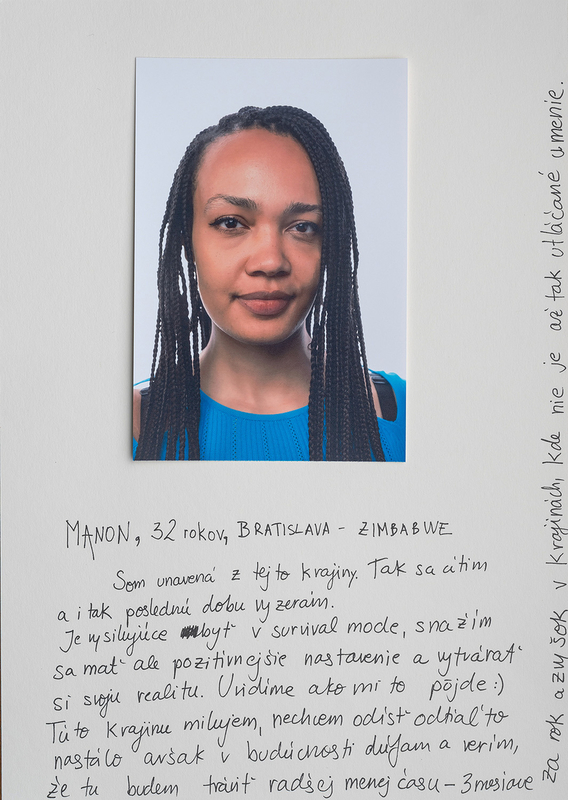 MANON, 32 rokov, BRATISLAVA - ZIMBABWE
Som unavená z tejto krajiny. Tak sa cítim
a i tak poslednú dobu vyzerám.
Je vysilujúce byť v survival mode, snažím
sa mať ale pozitívnejšie nastavenie a vytvárať
si svoju realitu. Uvidíme ako mi to pôjde :)
Túto krajinu milujem, nechcem odísť odtiaľto
nastálo avšak v budúcnosti dúfam a verím,
že tu budem tráviť radšej menej času - 3 mesiace
za rok a zvyšok v krajinách, kde nie je až tak utláčané umenie.